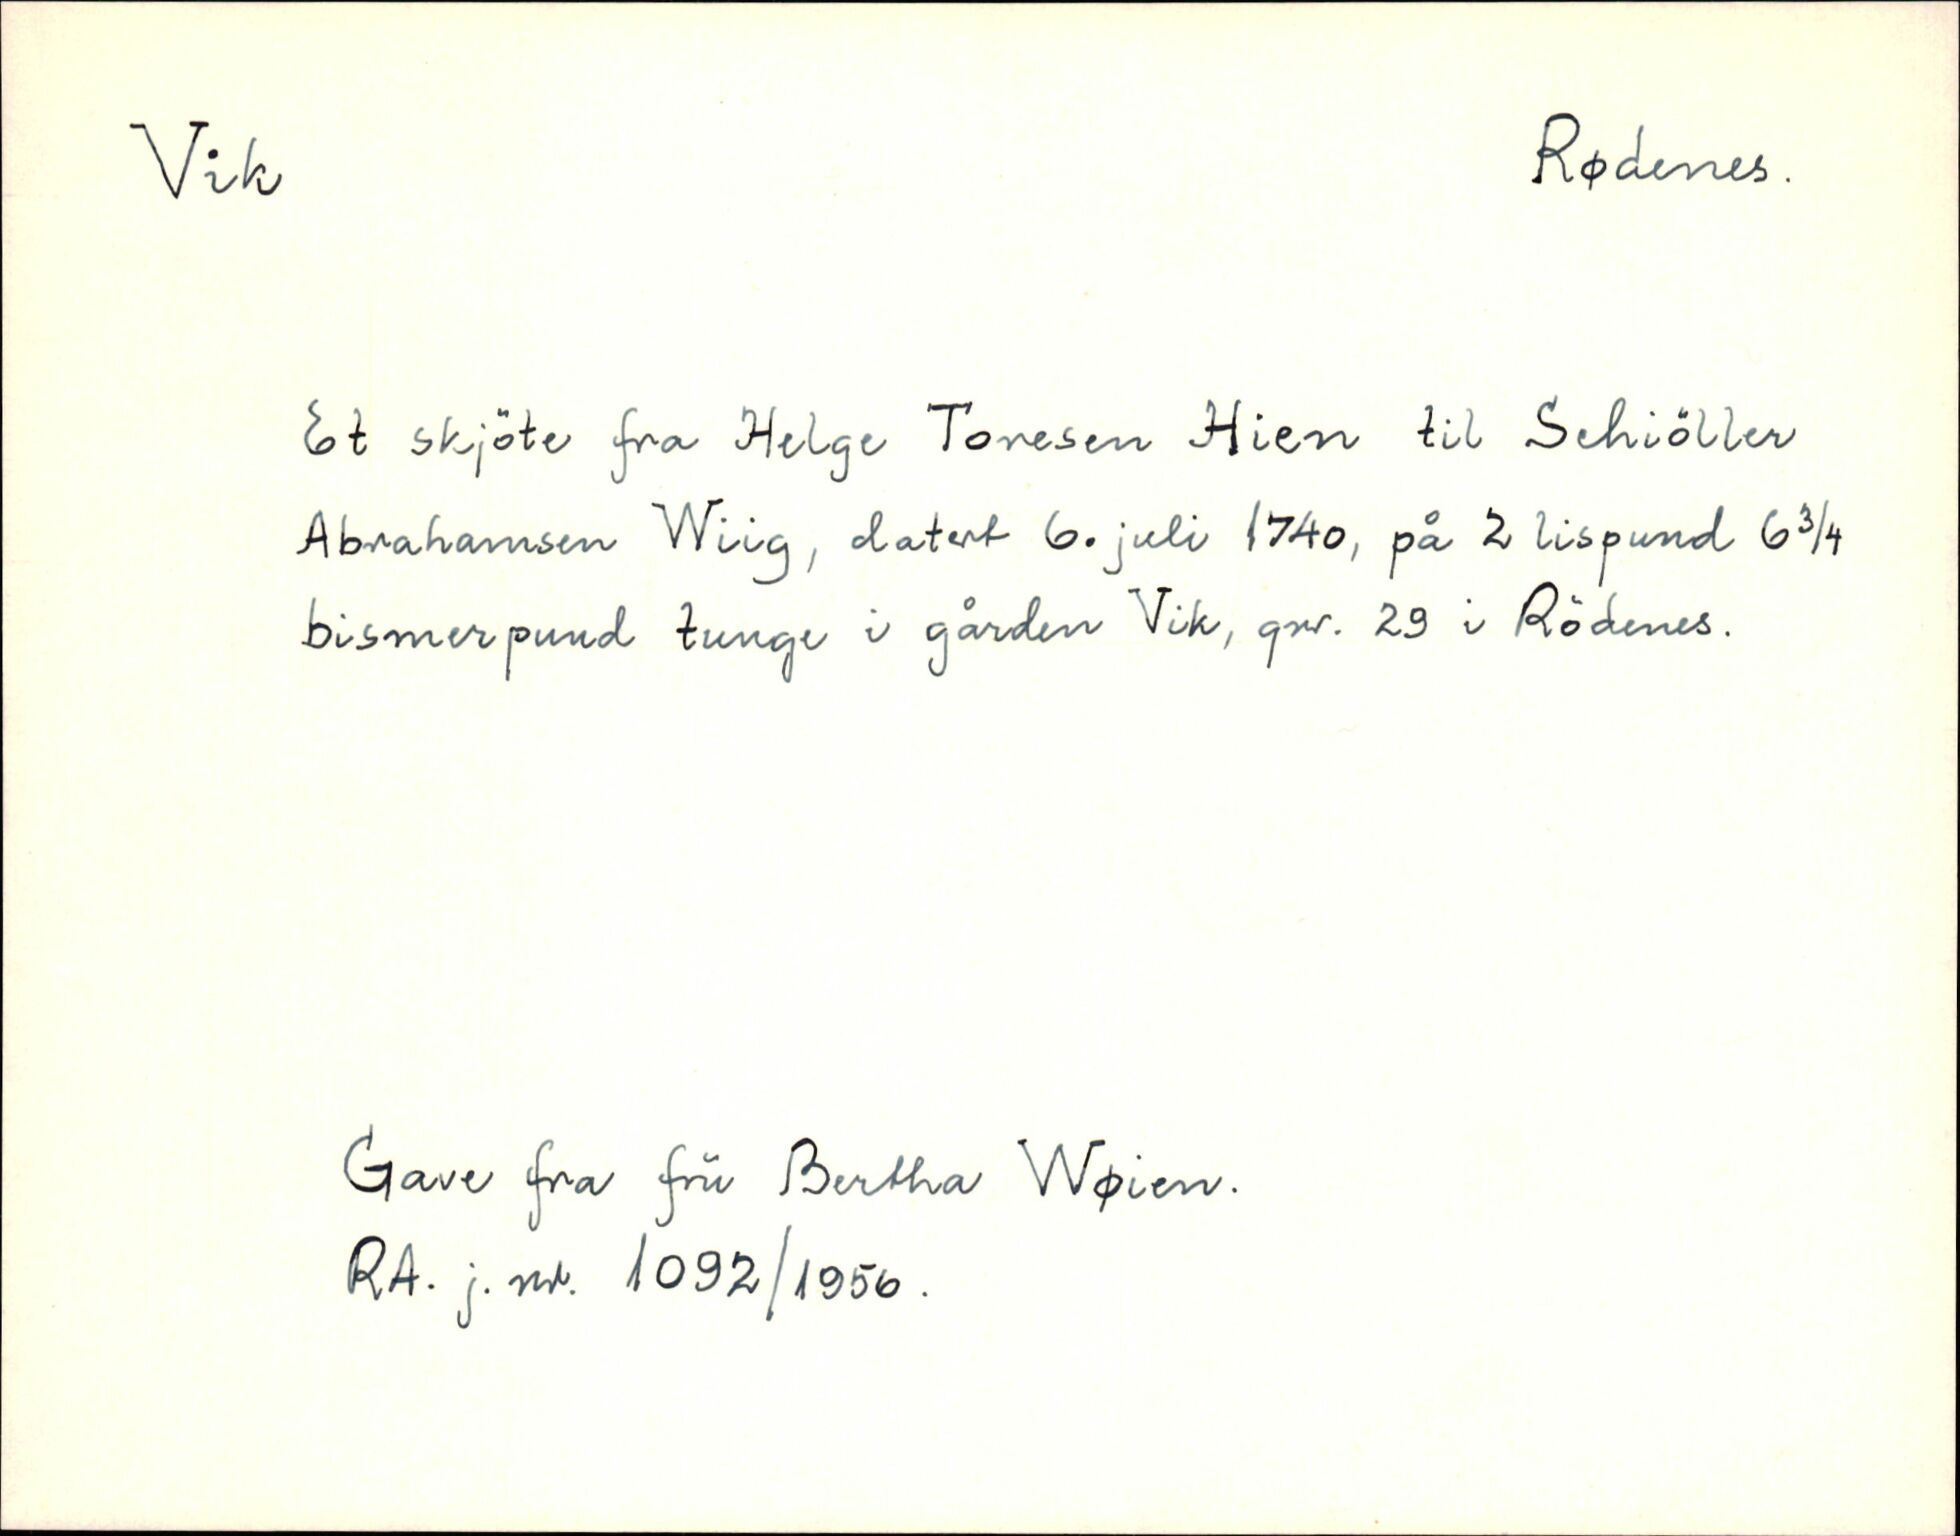 Vik
Rødenes.
Et skjöte fra Helge Toresen Hien til Schiöller
Abrahamsen Wiig, datert 6. juli 1740, på 2 lispund 6 3/4
bismerpund tunge i gården Vik, gnr. 29 i Rödenes.
Gave fra frü Bertha Wøien.
RA. j. nr. 1092/1956.